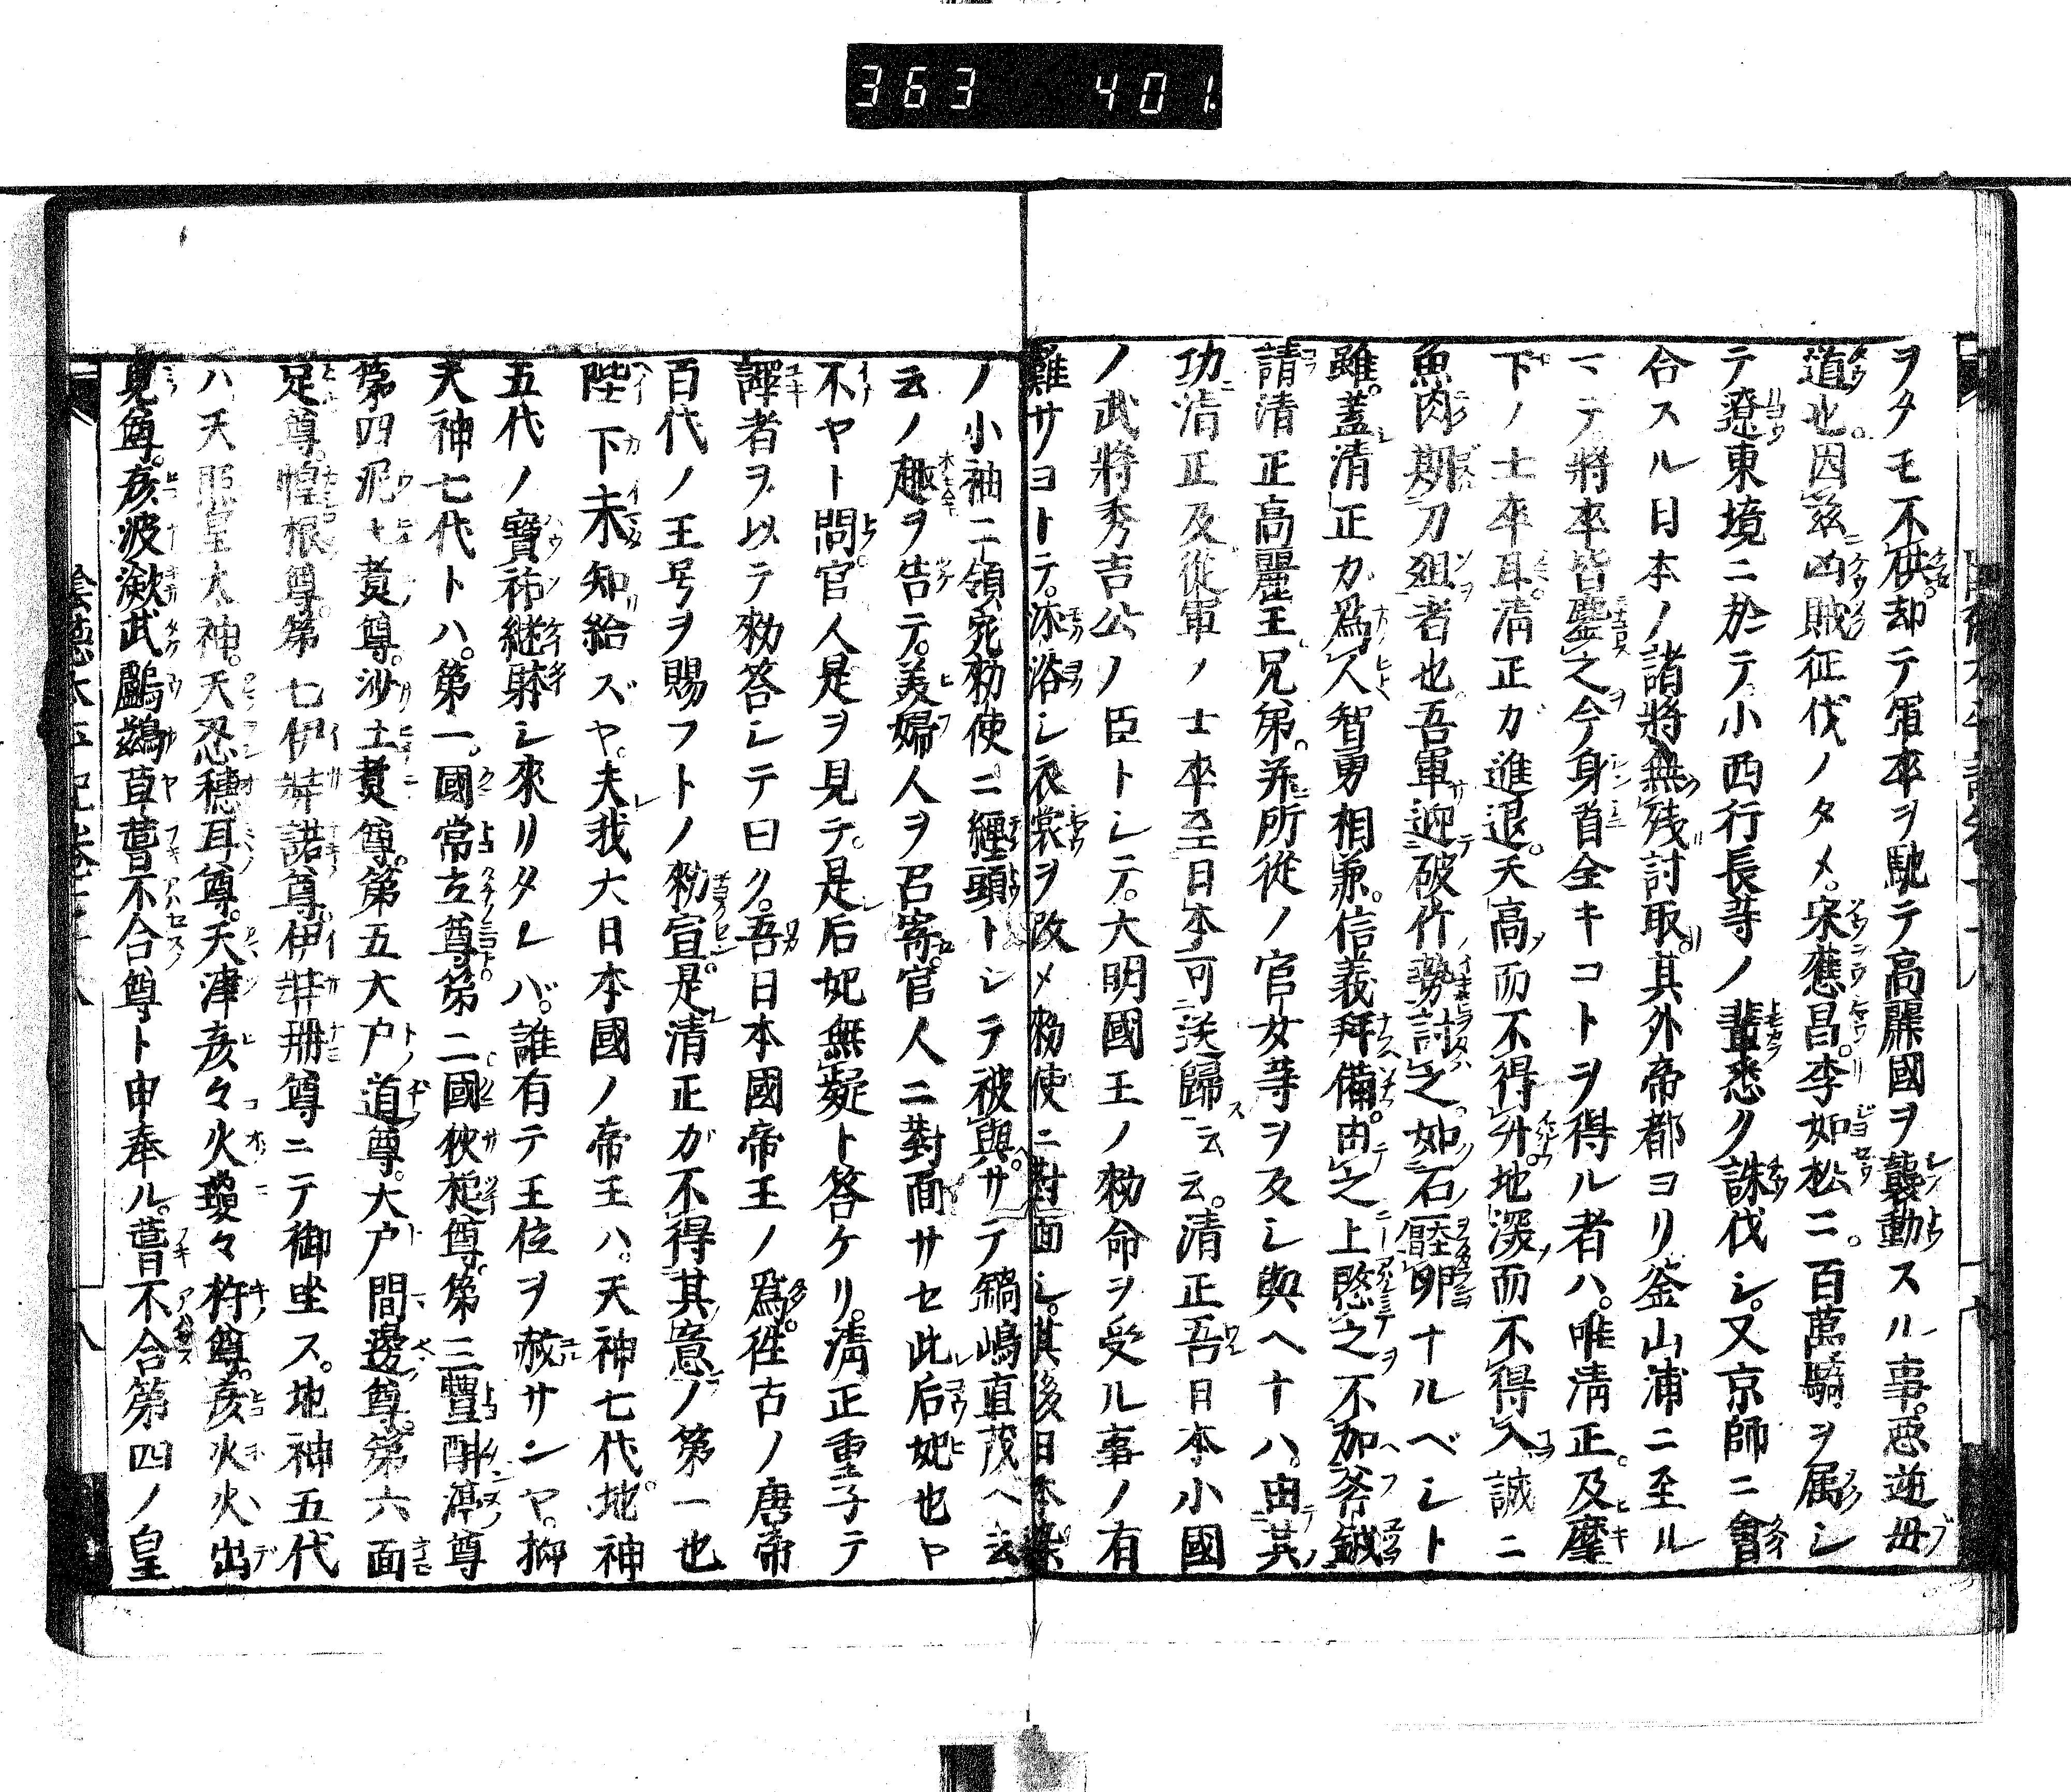 363 401.
ヲタモ不供却テ軍卒ヲ馳テ高麗國ヲ襲動スル事。惡逆毋
道也。因茲凶賊征伐ノタメ。宋應昌。李如松ニ。百萬騎ヲ属シ
テ遼東境ニ於テ。小西行長等ノ輩悉ク誅伐シ。又京師ニ會
合スル日本ノ諸將無残討取。其外帝都ヨリ釜山浦ニ至ル
マテ將卒皆鏖之今身首全キコトヲ得ル者ハ。唯清正。及麾
下ノ士卒耳。清正ガ進退。天高而不得升。地深而不得入誠ニ
魚肉期刀俎者也。吾軍迎破竹勢討之。如石壓卵ナルベシト
雖。蓋清正カ為人智勇相兼。信義拜備。由之上愍之不加斧鉞
請清正高麗王兄弟。并所從ノ官女等ヲ及シ與ヘナハ。由其
功清正及從軍ノ士卒至日本可送歸云云。清正吾日本小國
ノ武將秀吉公ノ臣トシテ。大明國王ノ勅命ヲ受ル事ノ有
難サヨトテ。沐浴シ衣裳ヲ改メ勅使ニ對面シ。其後日本染
ノ小袖二領宛勅使ニ纏頭トシテ被與。サテ鍋嶋直茂ヘ云
云ノ趣ヲ告テ。美婦人ヲ召寄。官人ニ對面サセ此后妃也ヤ
不ヤト問。官人是ヲ見テ。是后妃無疑ト答ケリ。清正重子テ
譯者ヲ以テ勅答シテ曰ク。吾日本國帝王ノ為。往古ノ唐帝
百代ノ王号ヲ賜フトノ勅宣。是清正カ不得其意ノ第一也
陛下未知給ズヤ。夫我大日本國ノ帝王ハ。天神七代。地神
五代ノ寶祚継躰シ來リタレバ。誰有テ王位ヲ赦サンヤ。抑
天神七代トハ。第一。國常立尊。第二國狹槌尊。第三豐斟渟尊
第四泥土煑尊。沙土煑尊。第五大戸道尊。大戸間邊尊。第六面
足尊。惶根尊。第七伊弉諾尊。伊弉冊尊ニテ御坐ス。地神五代
ハ天照皇太神。天忍穗耳尊。天津彦々火瓊々杵尊。彦火火出
見尊。彦波瀲武鸕鷀草葺不合尊ト申奉ル。葺不合第四ノ皇